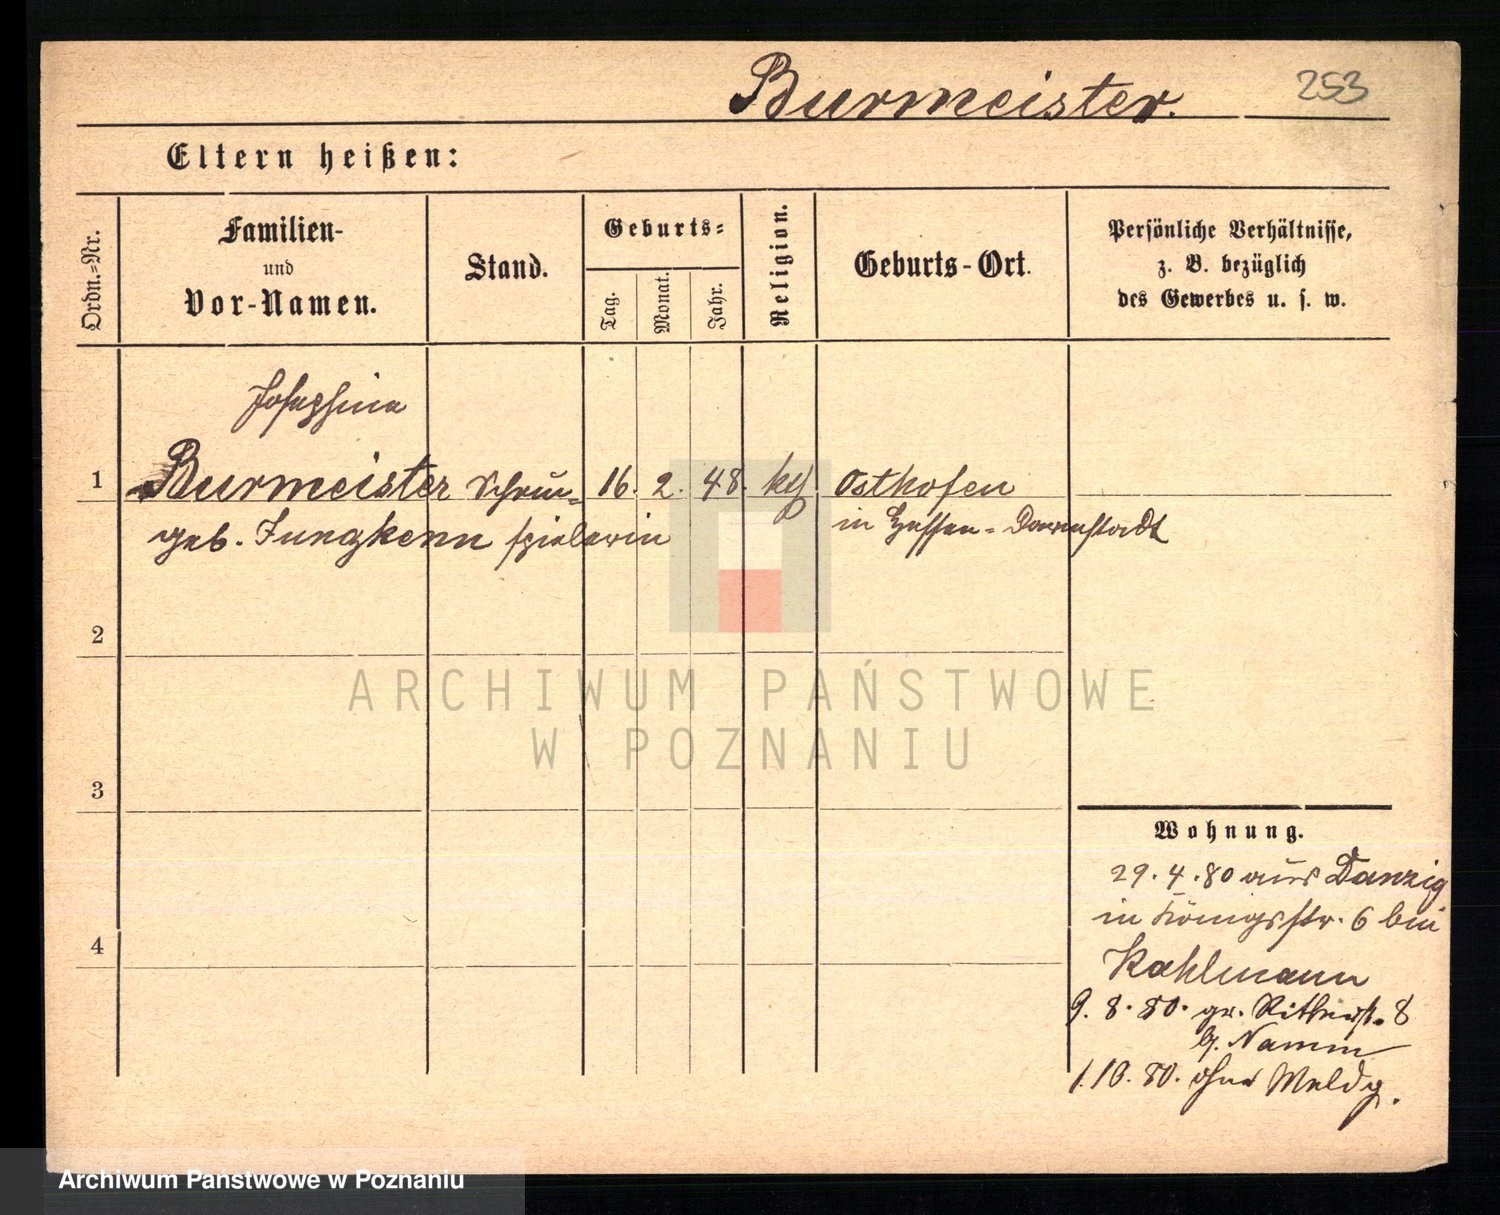 Burmeister. 253
Eltern heißen:
Ordn.-Nr.
Familien-
und
Vor-Namen.
Stand.
Geburts-
Tag.
Monat.
Jahr.
Religion.
Geburts-Ort.
Persönliche Verhältnisse,
z. B. bezüglich
des Gewerbes u. s. w.
Josephine
1 Burmeister Schau- 16. 2. 48. kth Osthofen
geb. Jungkenn spielerin in Hessen-Darmstadt
2
3
4
Wohnung.
29.4.80 aus Danzig
in Königsstr. 6 bei
Kahlmann
9.8.80. gr. Ritterst. 8
b. Namm
1.10.80. ohne Meldg.
ARCHIWUM PAŃSTWOWE
W POZNANIU
Archiwum Państwowe w Poznaniu